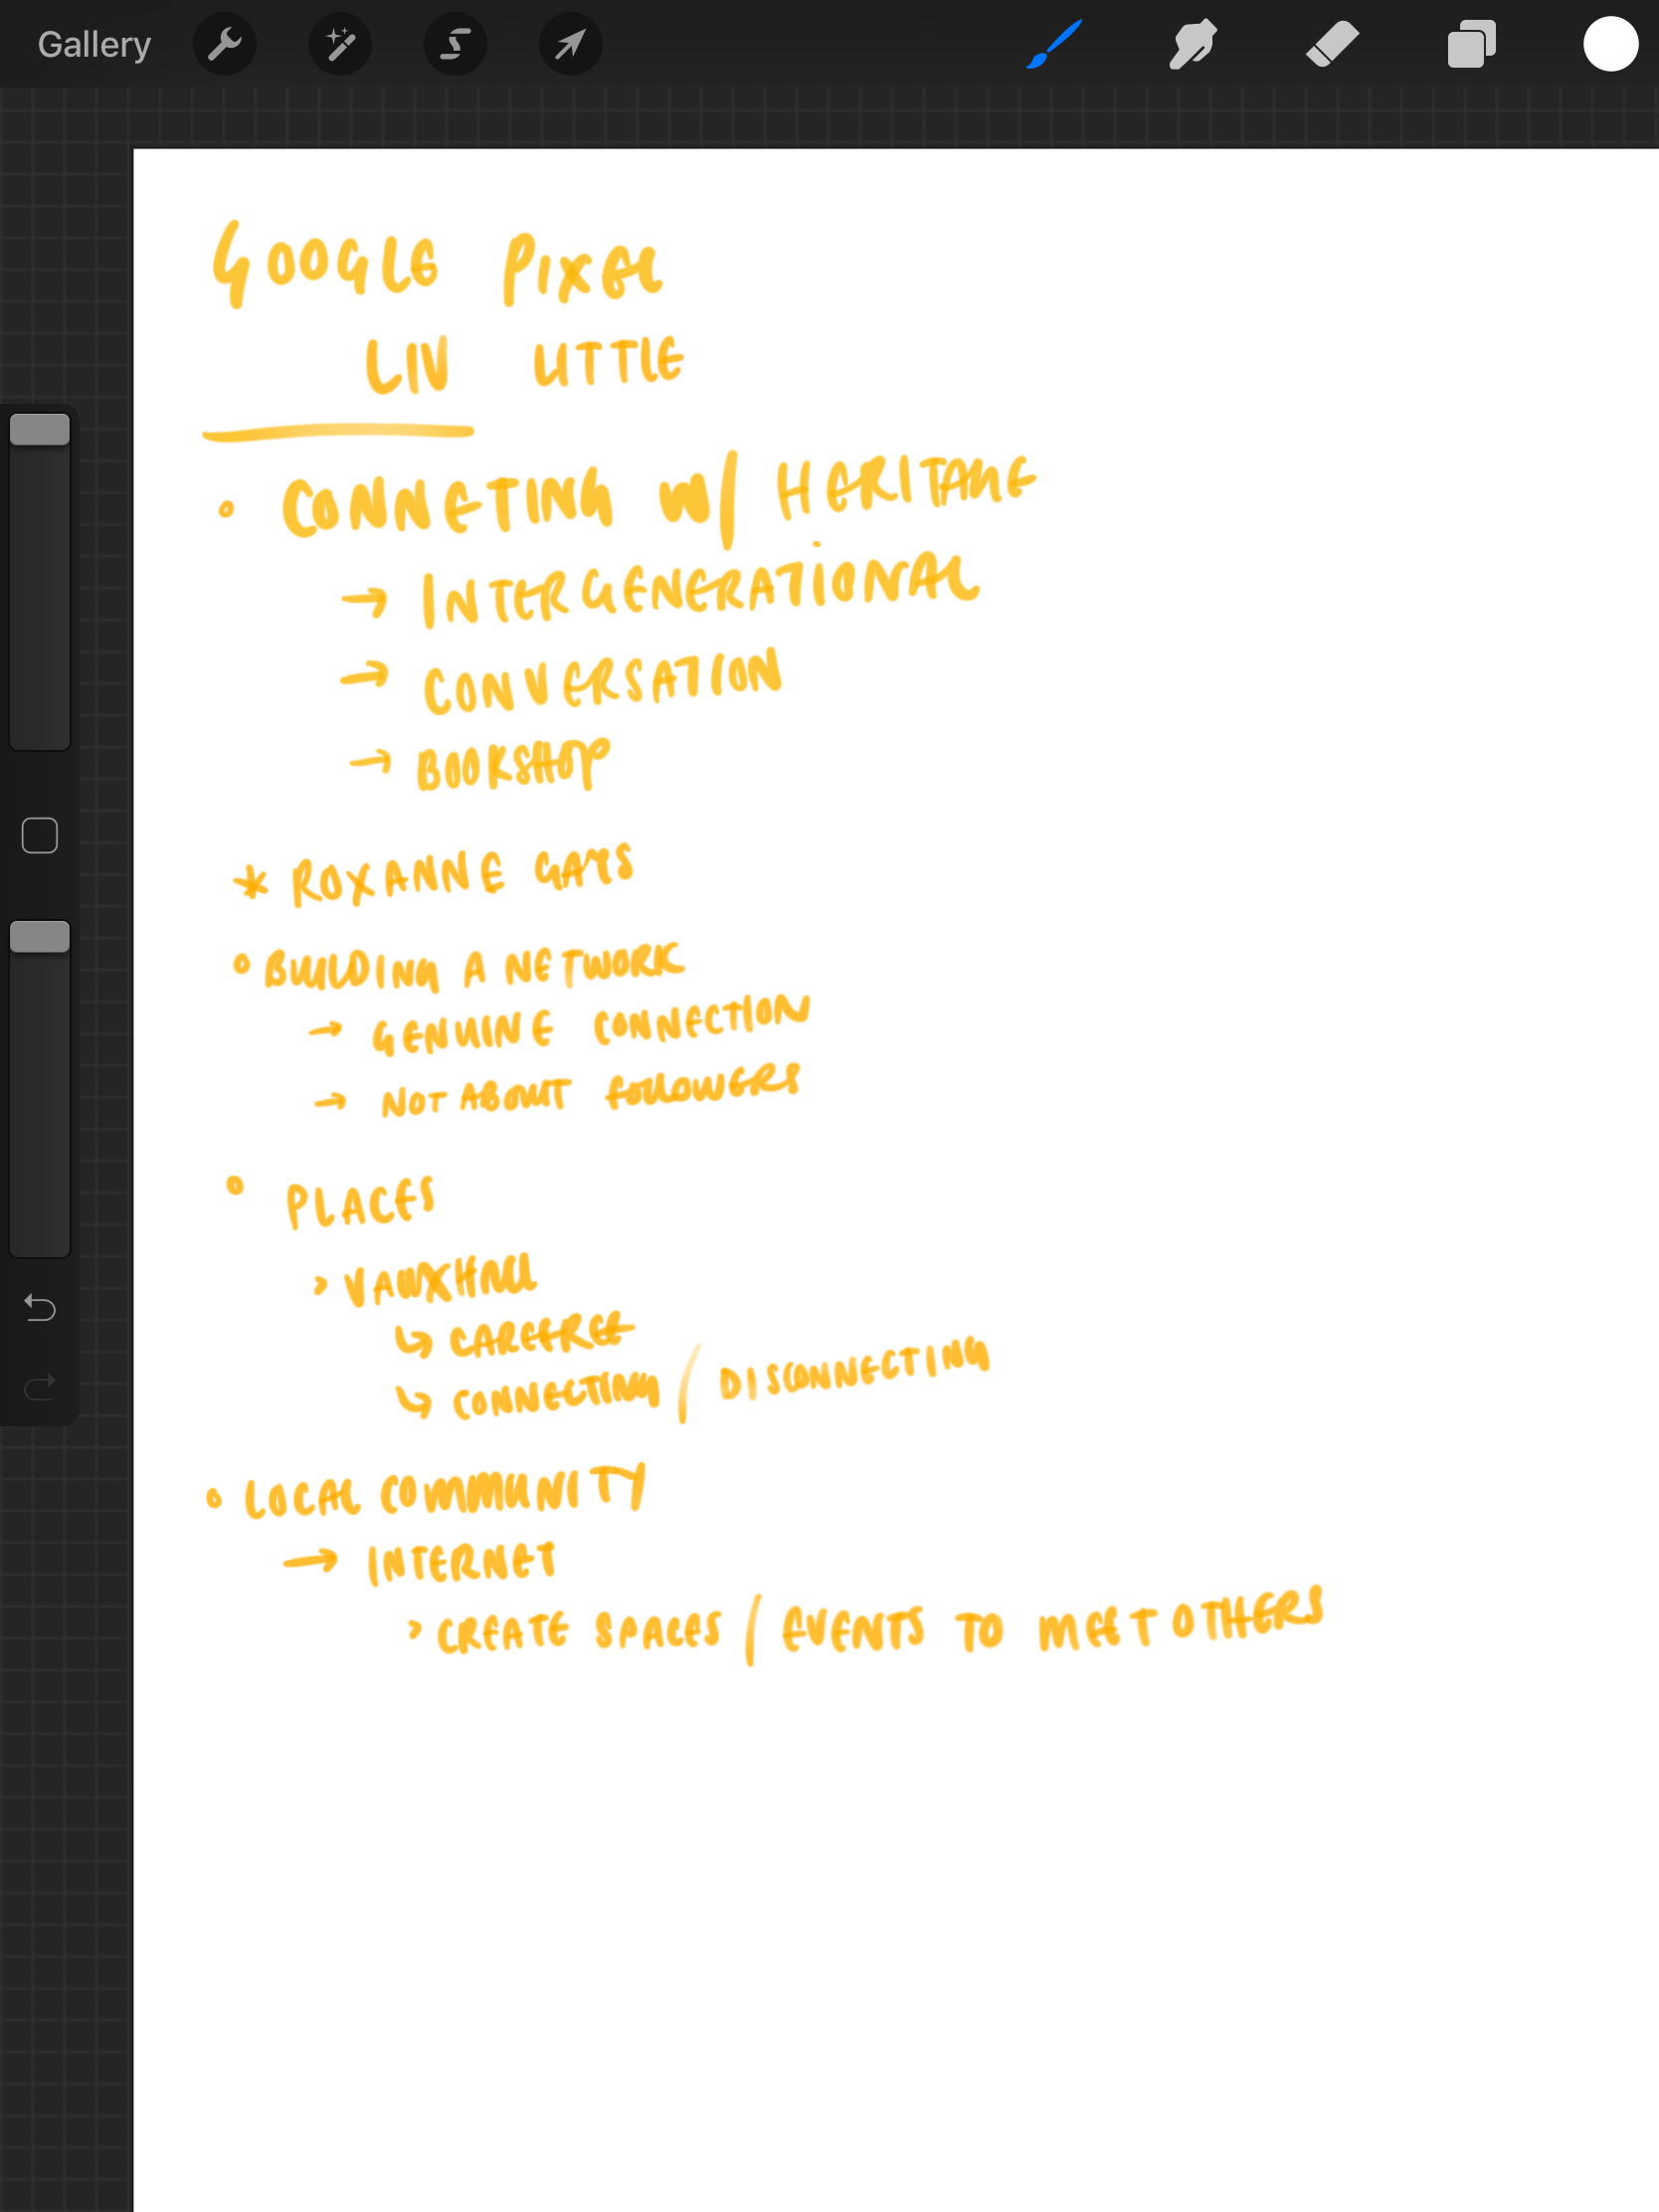 Gallery
GOOGLE PIXEL
LIV LITTLE
• CONNETING W/ HERITAGE
→ INTERGENERATIONAL
→ CONVERSATION
→ BOOKSHOP
* ROXANNE GAYS
• BUILDING A NETWORK
→ GENUINE CONNECTION
→ NOT ABOUT FOLLOWERS
• PLACES
> VAUXHALL
↳ CAREFREE
↳ CONNECTING / DISCONNECTING
• LOCAL COMMUNITY
→ INTERNET
> CREATE SPACES / EVENTS TO MEET OTHERS